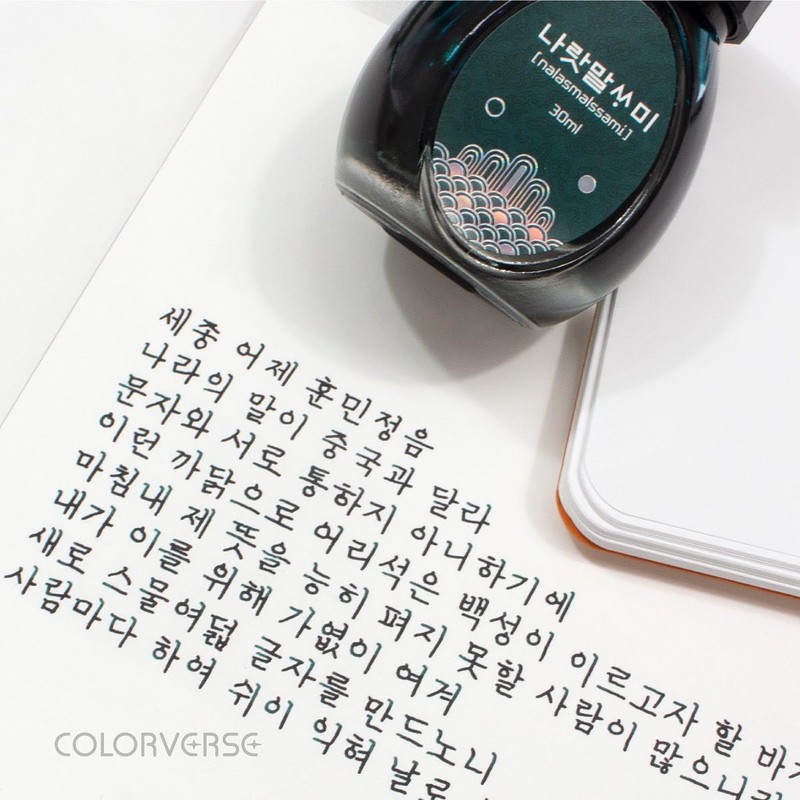 나랏말ᄊᆞ미
[nalasmalssami]
30ml
세종 어제 훈민정음
나라의 말이 중국과 달라
문자와 서로 통하지 아니하기에
이런 까닭으로 어리석은 백성이 이르고자 할 바가
마침내 제 뜻을 능히 펴지 못할 사람이 많으니라
내가 이를 위해 가엾이 여겨
새로 스물여덟 글자를 만드노니
사람마다 하여 쉬이 익혀 날로
COLORVERSE